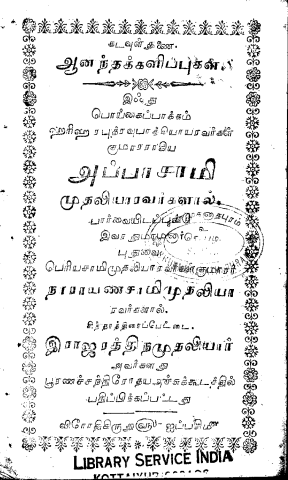 கடவுள் துணை.
ஆனந்தக்களிப்புகள்.
இஃது
பொய்கைப்பாக்கம்
ஹரிஹரபுத்ரஉபாத்தியாயரவர்கள்
குமாரராகிய
அப்பாசாமி
முதலியாரவர்களால்.
பார்வையிடப்பட்டு
இவர் அனுமதியின்
புதுவை
பெரியசாமிமுதலியாரவர்கள்குமாரர்
நாராயணசாமிமுதலியா
ரவர்களால்.
சிந்தாத்திரிப்பேட்டை.
இராஜரத்திநமுதலியார்
அவர்களது
பூரணச்சந்திரோதயஅச்சுக்கூடத்தில்
பதிப்பிக்கப்பட்டது
விரோதிகிருதுளு ஐப்பசிமீ
LIBRARY SERVICE INDIA